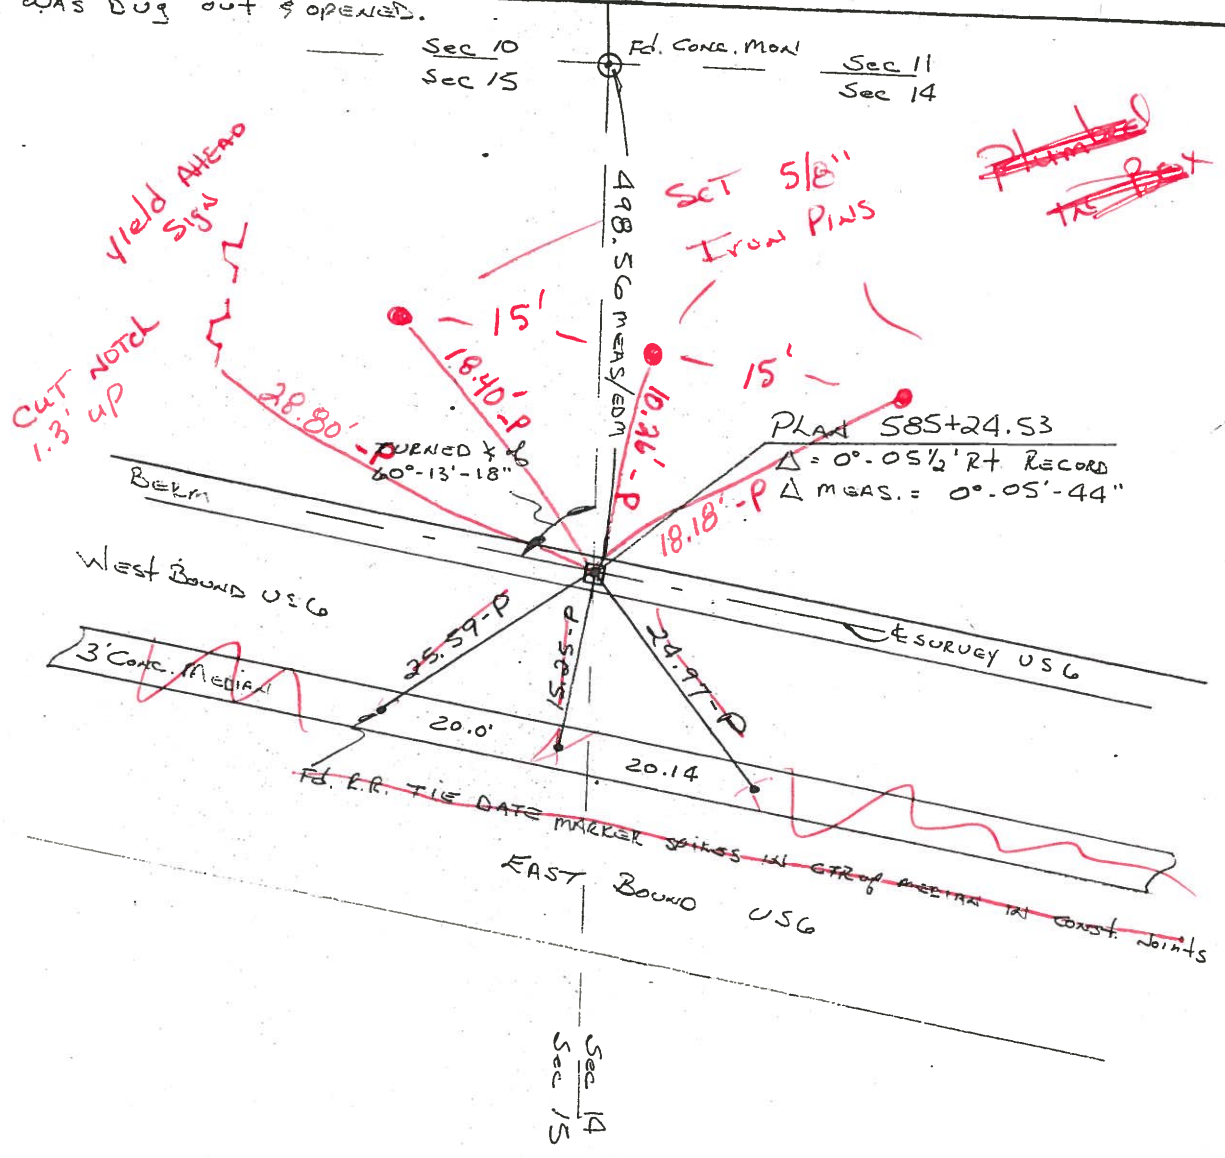 WAS DUG OUT & OPENED.
Sec 10
Sec 15
Fd. CONC. MON
Sec 11
Sec 14
Plumbed
In Box
Yield AHEAD
Sign
SeT 5/8"
Iron Pins
498.56 MEAS/EDM
15'
15'
CUT NOTCH
1.3' UP
28.80'-P
18.40'-P
10.26'-P
18.18'-P
TURNED ∡ of
60°-13'-18"
PLAN 585+24.53
Δ = 0°-05½' Rt RECORD
Δ MEAS. = 0°-05'-44"
BERM
WEST BOUND US6
℄ SURVEY US6
3' CONC. MEDIAN
25.59-P
15.85-P
24.97-P
20.0'
20.14
Fd. R.R. TIE DATE MARKER SPIKES IN CTR of MEDIAN IN CONST. Joints
EAST BOUND US6
Sec 14
Sec 15